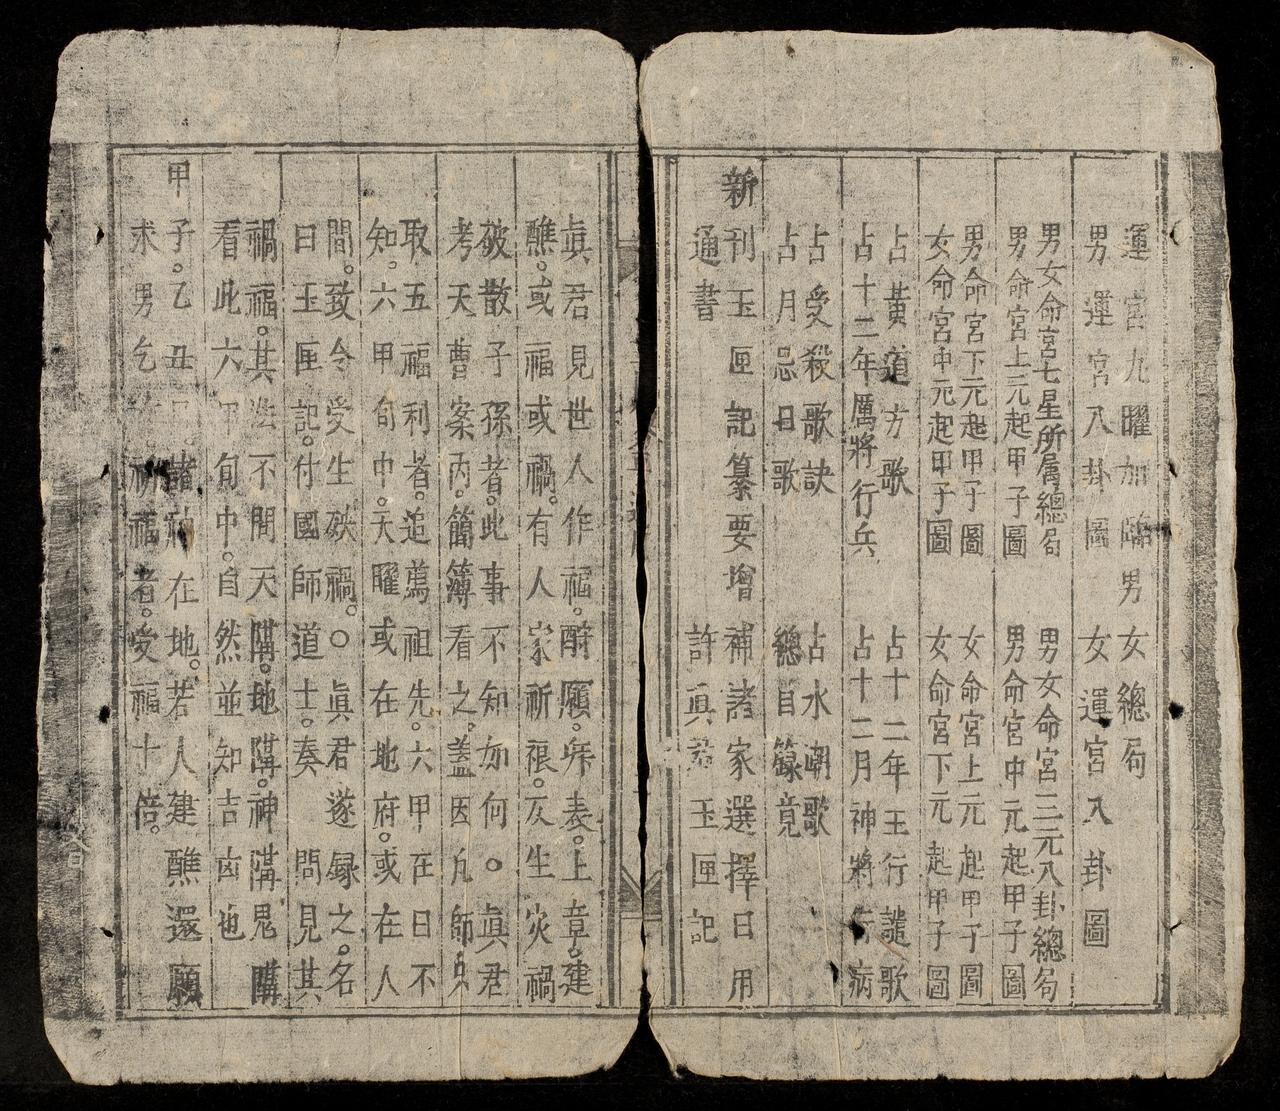 運宮九曜加臨男女總局
男運宮八卦圖　女運宮八卦圖
男女命宮七星所属總局　男女命宮三元八卦總局
男命宮上元起甲子圖　男命宮中元起甲子圖
男命宮下元起甲子圖　女命宮上元起甲子圖
女命宮中元起甲子圖　女命宮下元起甲子圖
占黃道方歌　占十二年王行譴歌
占十二年厲將行兵　占十二月神將行病
占受殺歌訣　占水潮歌
占月忌日歌　總目録竟
新刊玉匣記纂要增補諸家選擇日用
通書　許真君玉匣記
眞君見世人作福。酧願。疏表。上章。建
醮。或福或禍。有人家祈禳。反生灾禍
破散子孫者。此事不知如何。○眞君
考天曹案丙。簡簿看之。盖因凡師只
取五福利者。追薦祖先。六甲在日不
知。六甲旬中。天曜或在地府。或在人
間。致令受生殃禍。○眞君遂録之。名
曰玉匣記。付國師道士。奏問見其
禍福。其法不問天隣。地隣。神隣鬼隣
看此六甲旬中。自然並知吉凶也
甲子。乙丑。諸神在地。若人建醮還願
求男乞 祈福者。受福十倍。